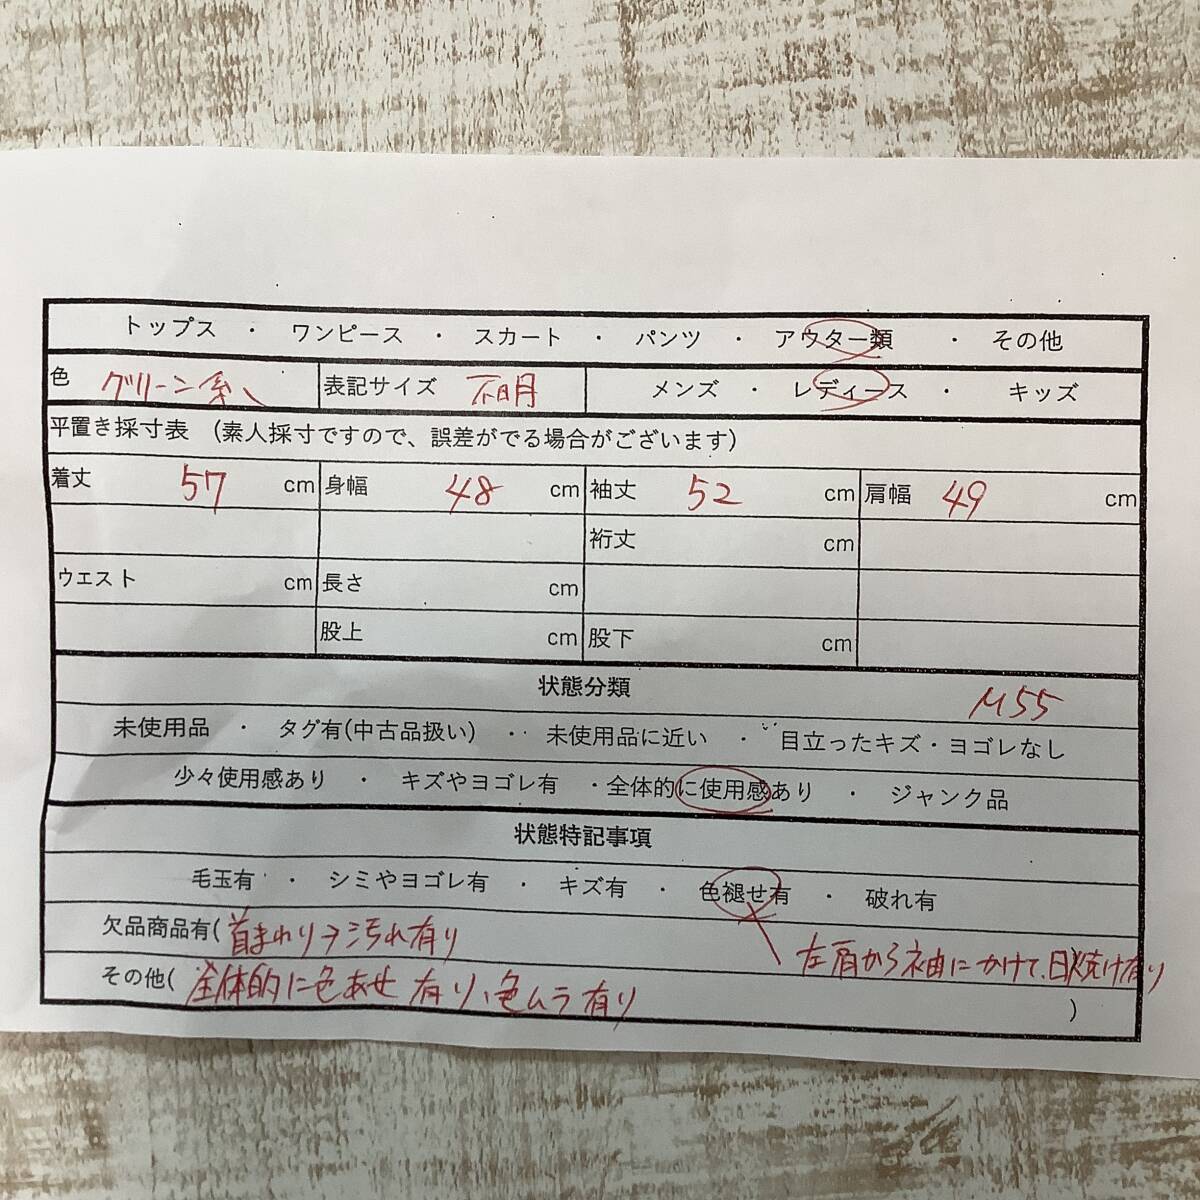 トップス ・ ワンピース ・ スカート ・ パンツ ・ アウター類 ・ その他
色 グリーン系 表記サイズ 不明 メンズ ・ レディース ・ キッズ
平置き採寸表 (素人採寸ですので、誤差がでる場合がございます)
着丈 57 cm 身幅 48 cm 袖丈 52 cm 肩幅 49 cm
裄丈 cm
ウエスト cm 長さ cm
股上 cm 股下 cm
状態分類 M55
未使用品 ・ タグ有(中古品扱い) ・ 未使用品に近い ・ 目立ったキズ・ヨゴレなし
少々使用感あり ・ キズやヨゴレ有 ・全体的に使用感あり ・ ジャンク品
状態特記事項
毛玉有 ・ シミやヨゴレ有 ・ キズ有 ・ 色褪せ有 ・ 破れ有
欠品商品有( 首まわり→汚れ有り )
左肩から袖にかけて、日焼け有り
その他( 全体的に色あせ有り、色ムラ有り )